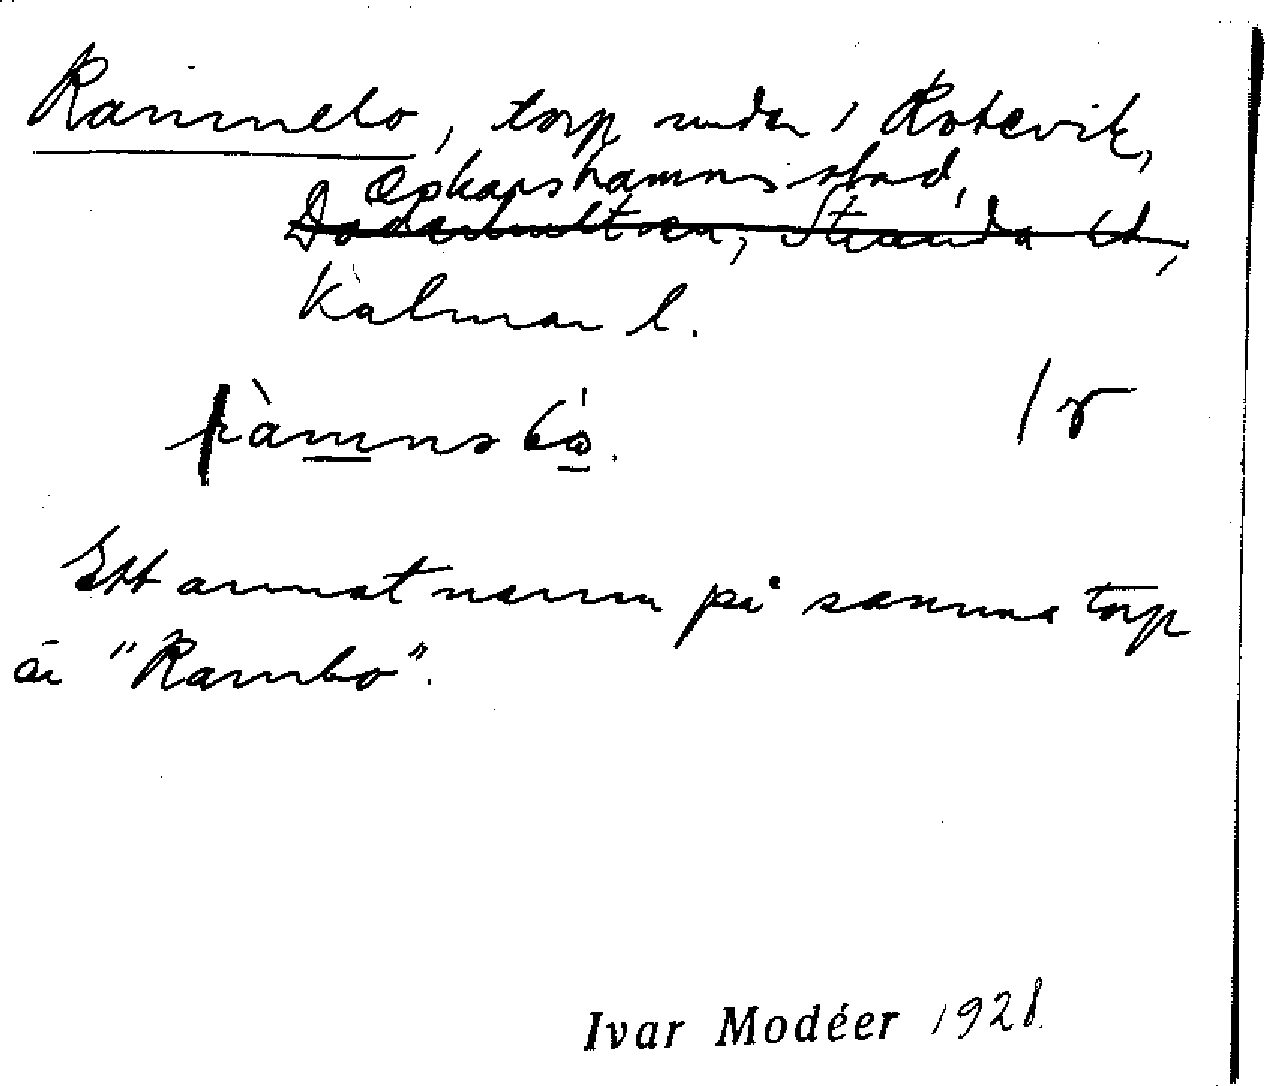 Rammebo, torp under / Rotevik,
Oskarshamns stad,
Döderhultsen, Stranda hd,
Kalmar l.
/r
Ett annat namn på samma torp
är "Rambo".
Ivar Modéer 1928.